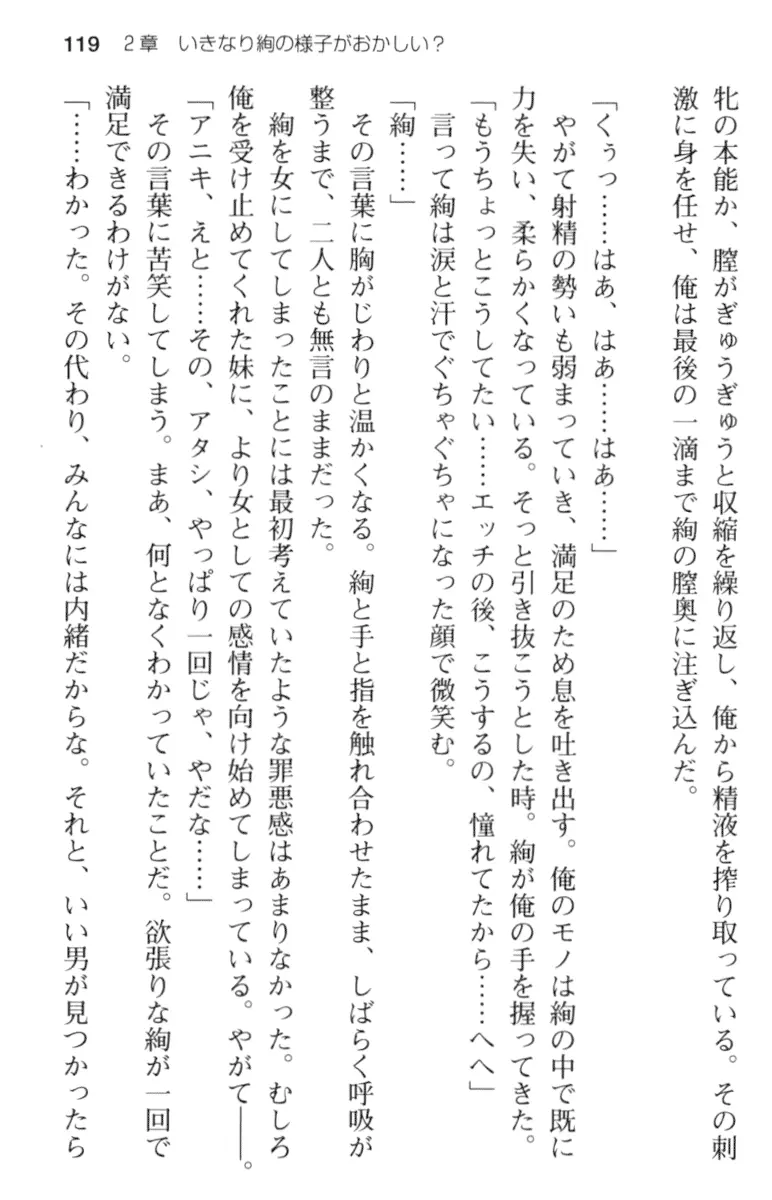 119 2章 いきなり絢の様子がおかしい？
牝の本能か、膣がぎゅうぎゅうと収縮を繰り返し、俺から精液を搾り取っている。その刺
激に身を任せ、俺は最後の一滴まで絢の膣奥に注ぎ込んだ。
「くぅっ……はあ、はあ……はあ……」
やがて射精の勢いも弱まっていき、満足のため息を吐き出す。俺のモノは絢の中で既に
力を失い、柔らかくなっている。そっと引き抜こうとした時。絢が俺の手を握ってきた。
「もうちょっとこうしてたい……エッチの後、こうするの、憧れてたから……へへ」
言って絢は涙と汗でぐちゃぐちゃになった顔で微笑む。
「絢……」
その言葉に胸がじわりと温かくなる。絢と手と指を触れ合わせたまま、しばらく呼吸が
整うまで、二人とも無言のままだった。
絢を女にしてしまったことには最初考えていたような罪悪感はあまりなかった。むしろ
俺を受け止めてくれた妹に、より女としての感情を向け始めてしまっている。やがて――。
「アニキ、えと……その、アタシ、やっぱり一回じゃ、やだな……」
その言葉に苦笑してしまう。まあ、何となくわかっていたことだ。欲張りな絢が一回で
満足できるわけがない。
「……わかった。その代わり、みんなには内緒だからな。それと、いい男が見つかったら